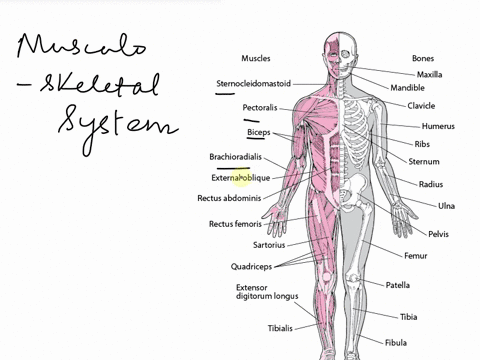 Musculo
- Skeletal
System
Muscles
Sternocleidomastoid
Pectoralis
Biceps
Brachioradialis
External oblique
Rectus abdominis
Rectus femoris
Sartorius
Quadriceps
Extensor
digitorum longus
Tibialis
Bones
Maxilla
Mandible
Clavicle
Humerus
Ribs
Sternum
Radius
Ulna
Pelvis
Femur
Patella
Tibia
Fibula